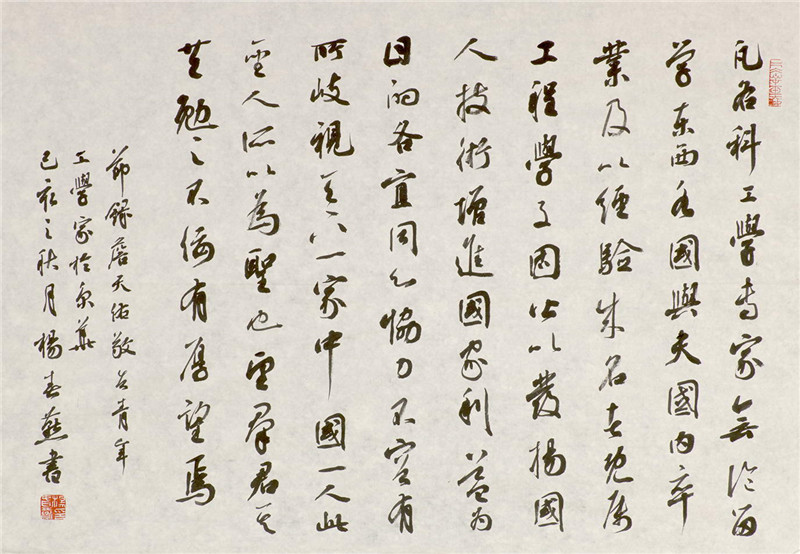 凡各科工學專家無論留
学東西各國與夫國内卒
業及以經驗成名者既屬
工程學子固皆以發揚國
人技術增進國家利益为
目的各宜同心協力不宜有
所歧視天下一家中國一人此
聖人所以為聖也望群君子
共勉之不佞有厚望焉
節錄詹天佑敬告青年
工學家於京華
己亥之秋月楊春燕書